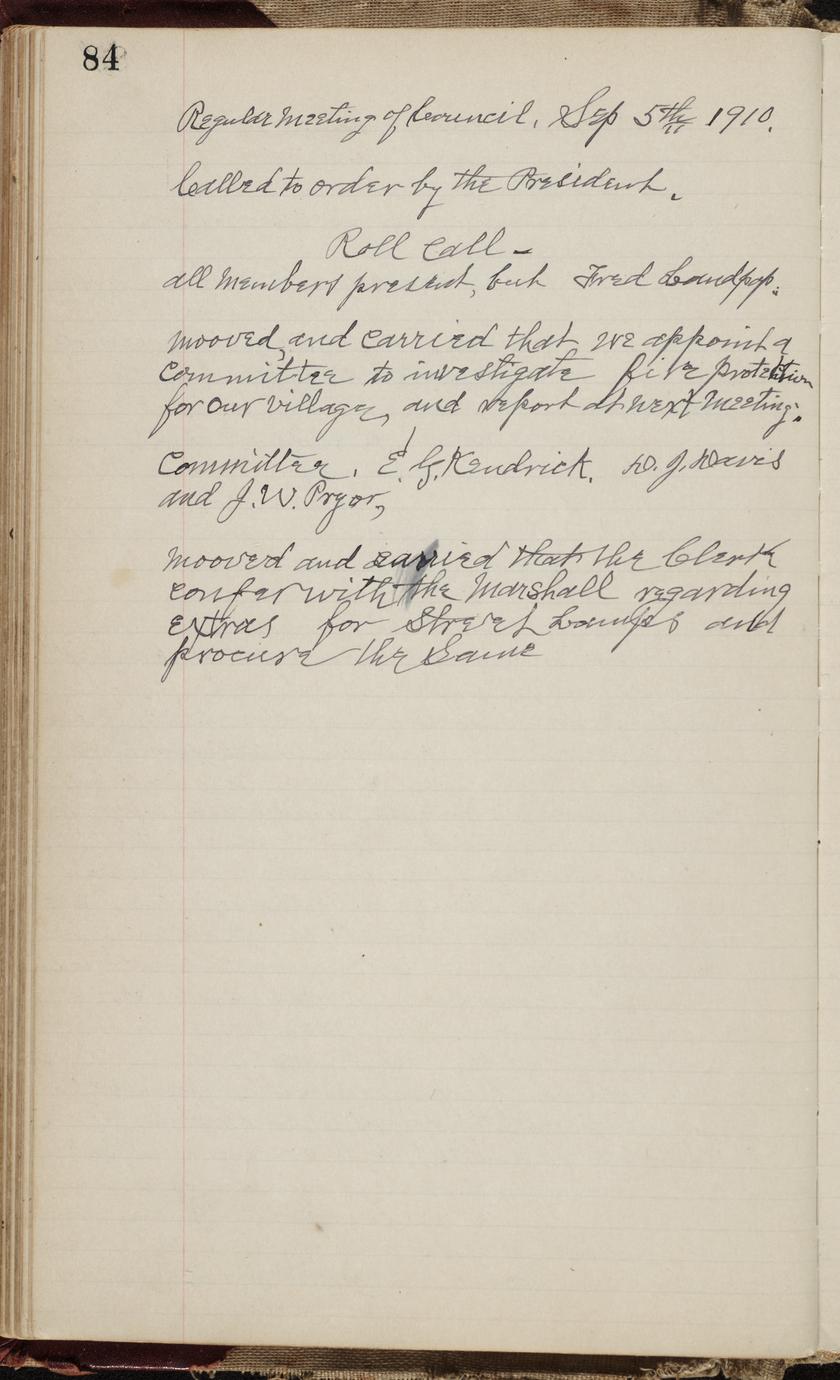 84
Regular Meeting of Council, Sep 5th 1910.
Called to order by the President.
Roll Call -
all members present, but Fred
mooved, and carried that we appoint a
committee to investigate fire protection
for our village, and report at next meeting.
Committee, E. G. Kendrick. D. J. Davis
and J. W. Pryor,
mooved and carried that the Clerk
confer with the Marshall regarding
extras for Street Lamps and
procure the same